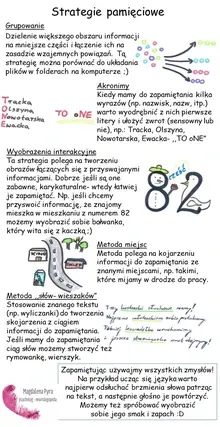 Strategie pamięciowe
Grupowanie
Dzielenie większego obszaru informacji
na mniejsze części i łączenie ich na
zasadzie wzajemnych powiązań. Tą
strategię można porównać do układania
plików w folderach na komputerze ;)
Akronimy
Kiedy mamy do zapamiętania kilka
wyrazów (np. nazwisk, nazw, itp.)
warto wyodrębnić z nich pierwsze
litery i ułożyć zwrot (sensowny lub
nie), np.: Tracka, Olszyna,
Nowotarska, Ewacka- ,,TO oNE"
Tracka
Olszyna
Nowotarska
Ewacka
TO oNE
Wyobrażenia interakcyjne
Ta strategia polega na tworzeniu
obrazów łączących się z przyswajanymi
informacjami. Dobrze jeśli są one
zabawne, karykaturalne- wtedy łatwiej
je zapamiętać. Np. jeśli chcemy
przyswoić informację, że znajomy
mieszka w mieszkaniu z numerem 82
możemy wyobrazić sobie bałwanka,
który wita się z kaczką;)
Metoda miejsc
Metoda polega na kojarzeniu
informacji do zapamiętania ze
znanymi miejscami, np. takimi,
które mijamy w drodze do pracy.
Metoda ,,słów- wieszaków"
Stosowanie znanego tekstu
(np. wyliczanki) do tworzenia
skojarzenia z ciągiem
informacji do zapamiętania.
Jeśli mamy do zapamiętania
ciąg słów możemy stworzyć też
rymowankę, wierszyk.
Zapamiętując używajmy wszystkich zmysłów!
Na przykład ucząc się języka warto
najpierw odsłuchać brzmienia słowa patrząc
na tekst, a następnie głośno je powtórzyć.
Możemy też spróbować wyobrazić
sobie jego smak i zapach :D
Magdalena Pyra